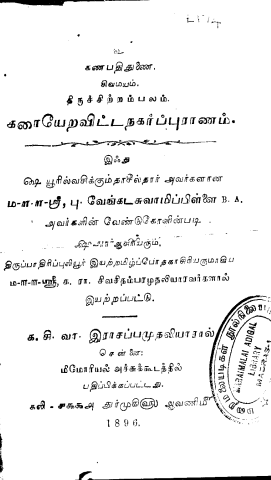 உ
கணபதிதுணை.
சிவமயம்.
திருச்சிற்றம்பலம்.
கரையேறவிட்டநகர்ப்புராணம்.
இஃது
ஷெ யூரில்வசிக்கும்தாசில்தார் அவர்களான
ம-ள-ள-ஸ்ரீ, பு. வேங்கடசுவாமிப்பிள்ளை B. A.
அவர்களின் வேண்டுகோளின்படி
திருப்பாதிரிப்புலியூர் இயற்றமிழ்ப்போதகாசிரியருமாகிய
ம-ள-ள-ஸ்ரீ, சு. ரா. சிவசிதம்பரமுதலியாரவர்களால்
இயற்றப்பட்டு.
க. சி. வா. இராசப்பமுதலியாரால்
சென்னை:
மீமோரியல் அச்சுக்கூடத்தில்
பதிப்பிக்கப்பட்டது.
கலி - ௪௯௯௮ துர்முகி௵ ஆவணிமீ
1896.
மறைமலையடிகள் நூல்நிலையம்
MARAIMALAI ADIGAL
LIBRARY
MADRAS-1